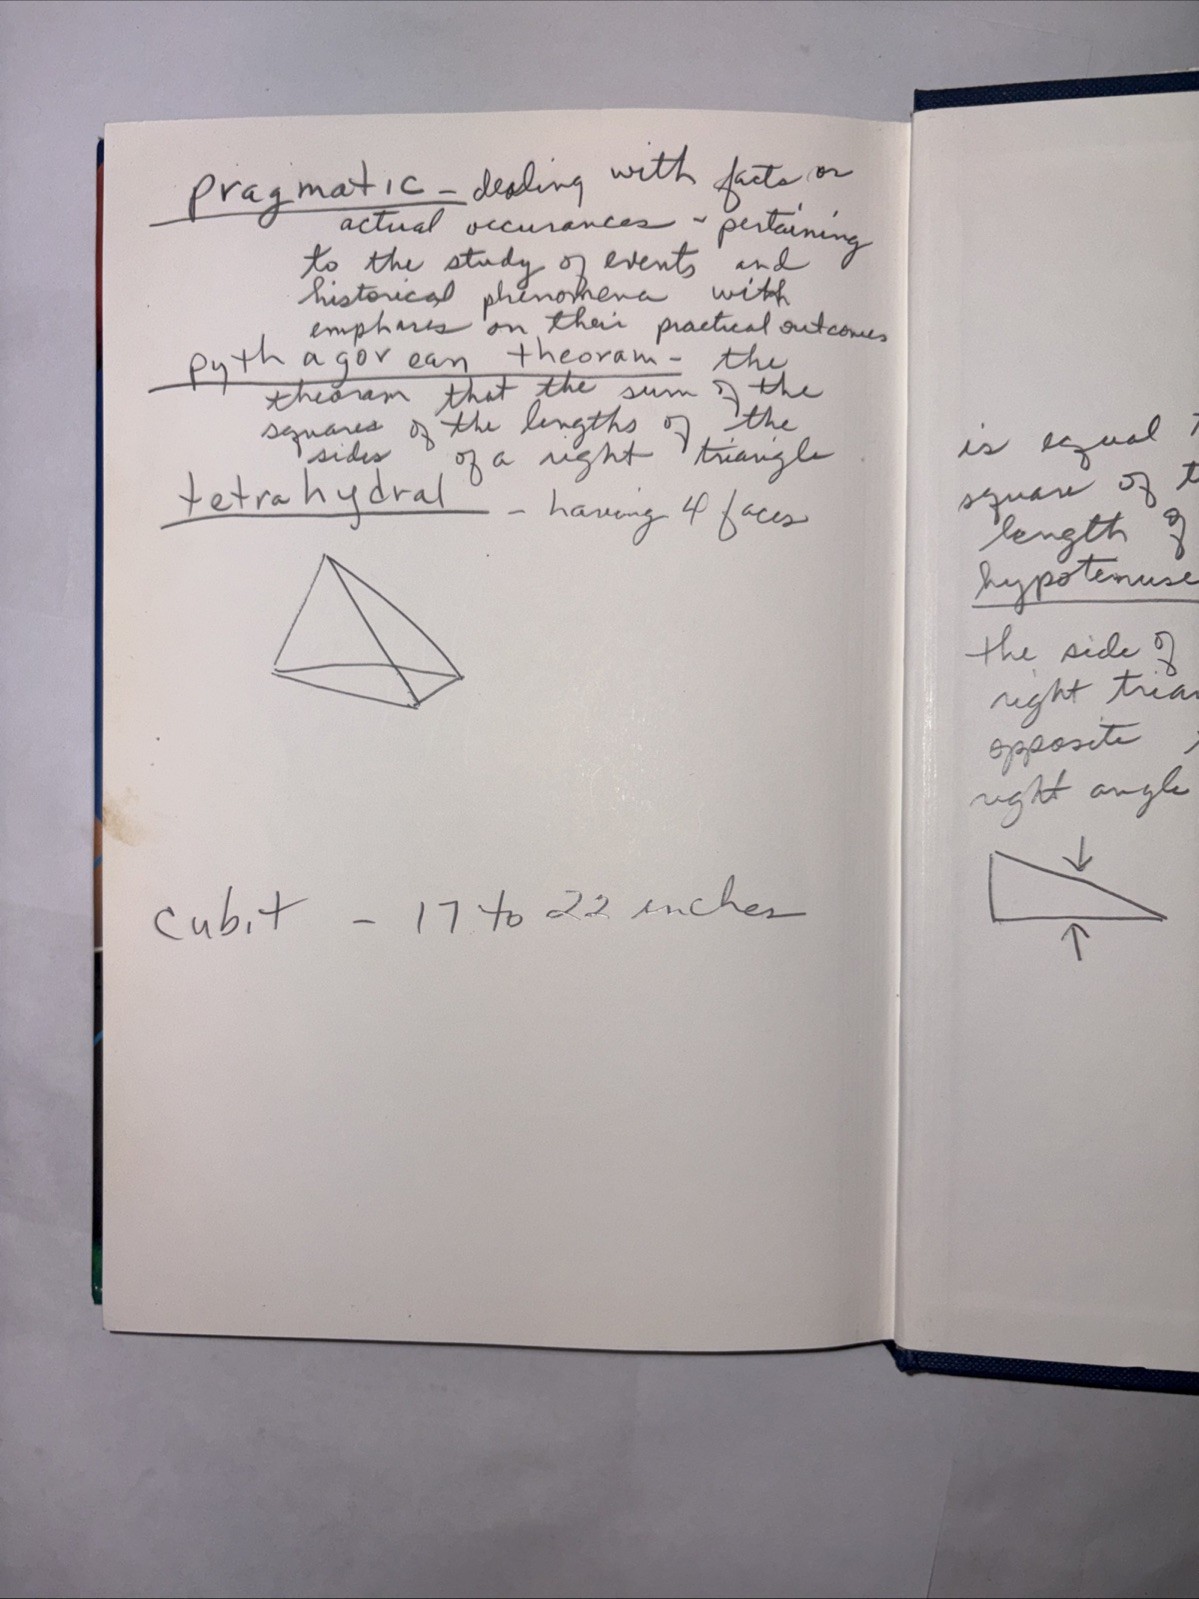 pragmatic - dealing with facts or
actual occurances - pertaining
to the study of events and
historical phenomena with
emphases on their practical outcomes
pythagorean theoram - the
theoram that the sum of the
squares of the lengths of the
sides of a right triangle
tetrahydral - having 4 faces
cubit - 17 to 22 inches
is equal
square of
length of
hypotenuse
the side of
right
opposite
right angle